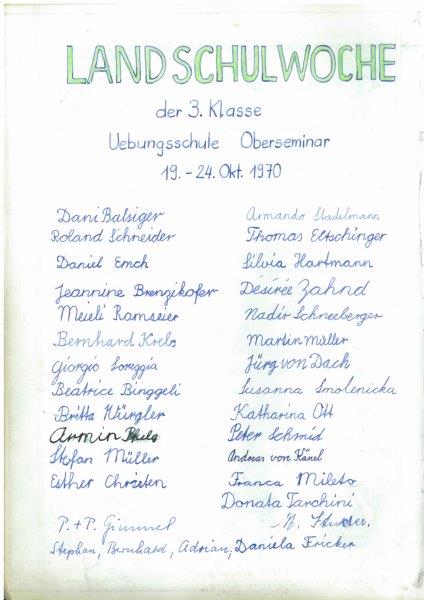 LANDSCHULWOCHE
der 3. Klasse
Uebungsschule Oberseminar
19. - 24. Okt. 1970
Dani Balsiger
Roland Schneider
Daniel Emch
Jeannine Brenzikofer
Meieli Ramseier
Bernhard Krebs
Giorgio Soreggia
Beatrice Binggeli
Britta Würgler
Armin
Stefan Müller
Esther Christen
Armando Stadelmann
Thomas Eltschinger
Silvia Hartmann
Désirée Zahnd
Nadir Schneeberger
Martin Müller
Jürg von Dach
Susanna Smolenicka
Katharina Ott
Peter Schmid
Andreas von Känel
Franca Mileto
Donata Tarchini
P. + P. Gimmel
Stephan, Bernhard, Adrian, Daniela Fricker